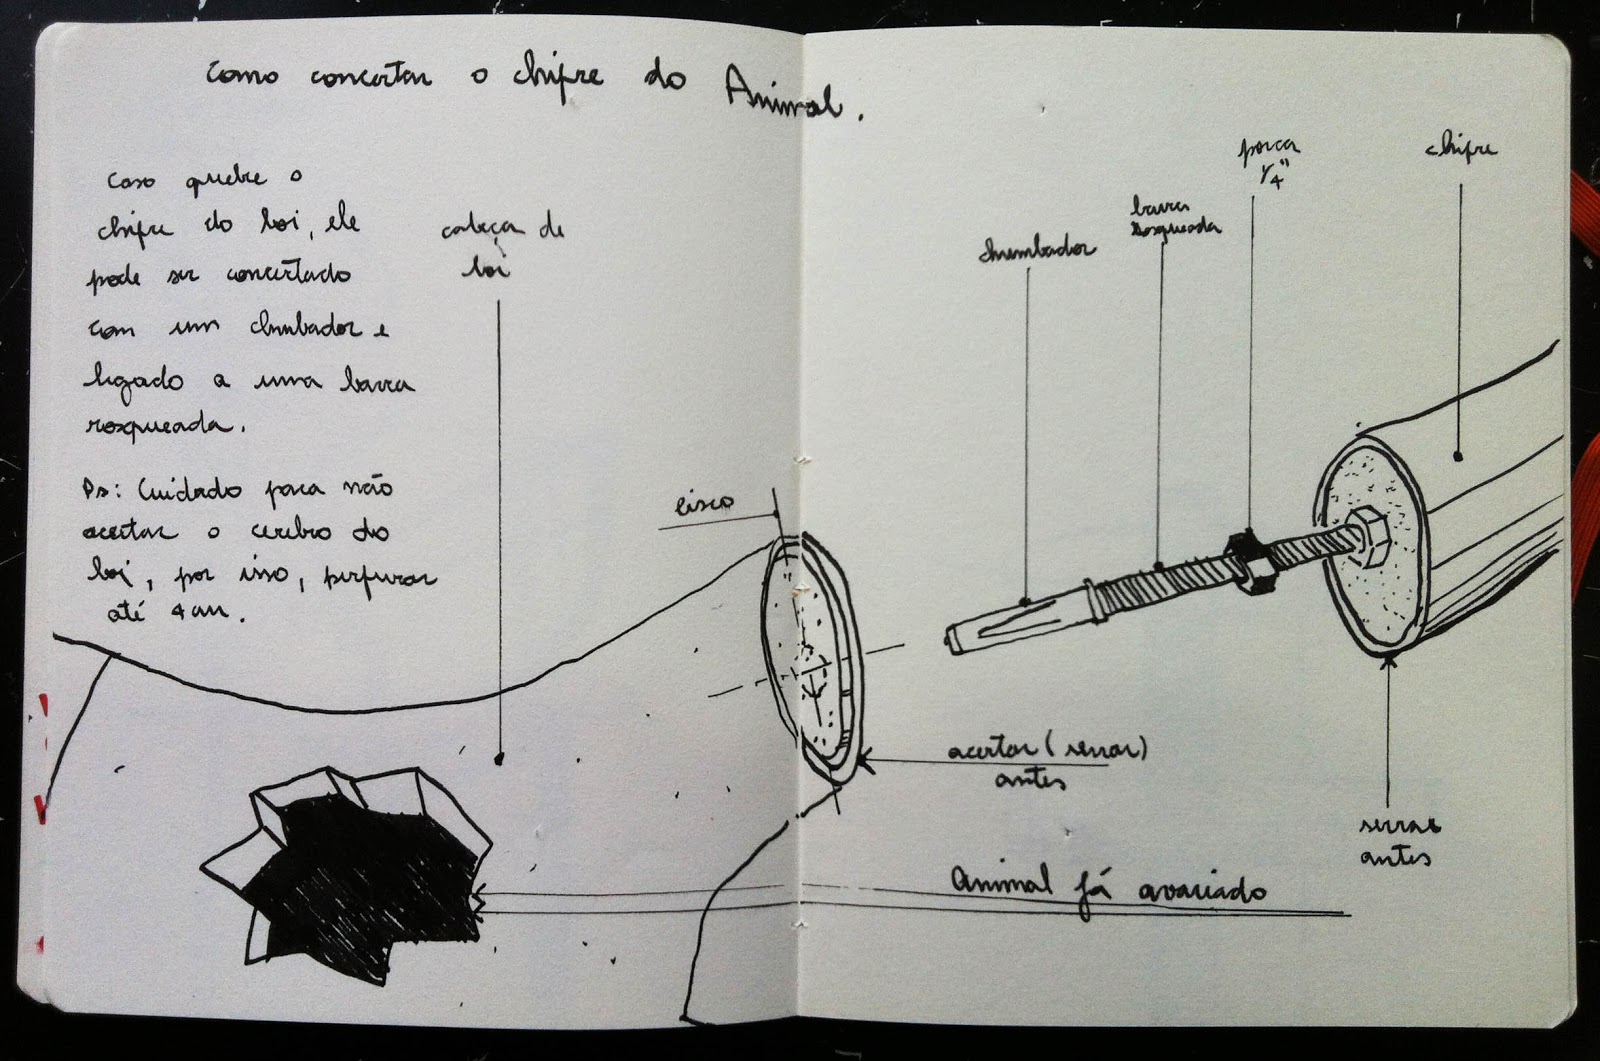 Como concertar o chifre do Animal.
Caso quebre o
chifre do boi, ele
pode ser concertado
com um chubador e
ligado a uma barra
rosqueada.
Ps: Cuidado para não
acertar o cerebro do
boi, por isso, perfurar
até 4cm.
cabeça de
boi
eisco
chumbador
barra
rosqueada
porca
1/4"
chifre
acertar (serrar)
antes
serrar
antes
Animal já avariado